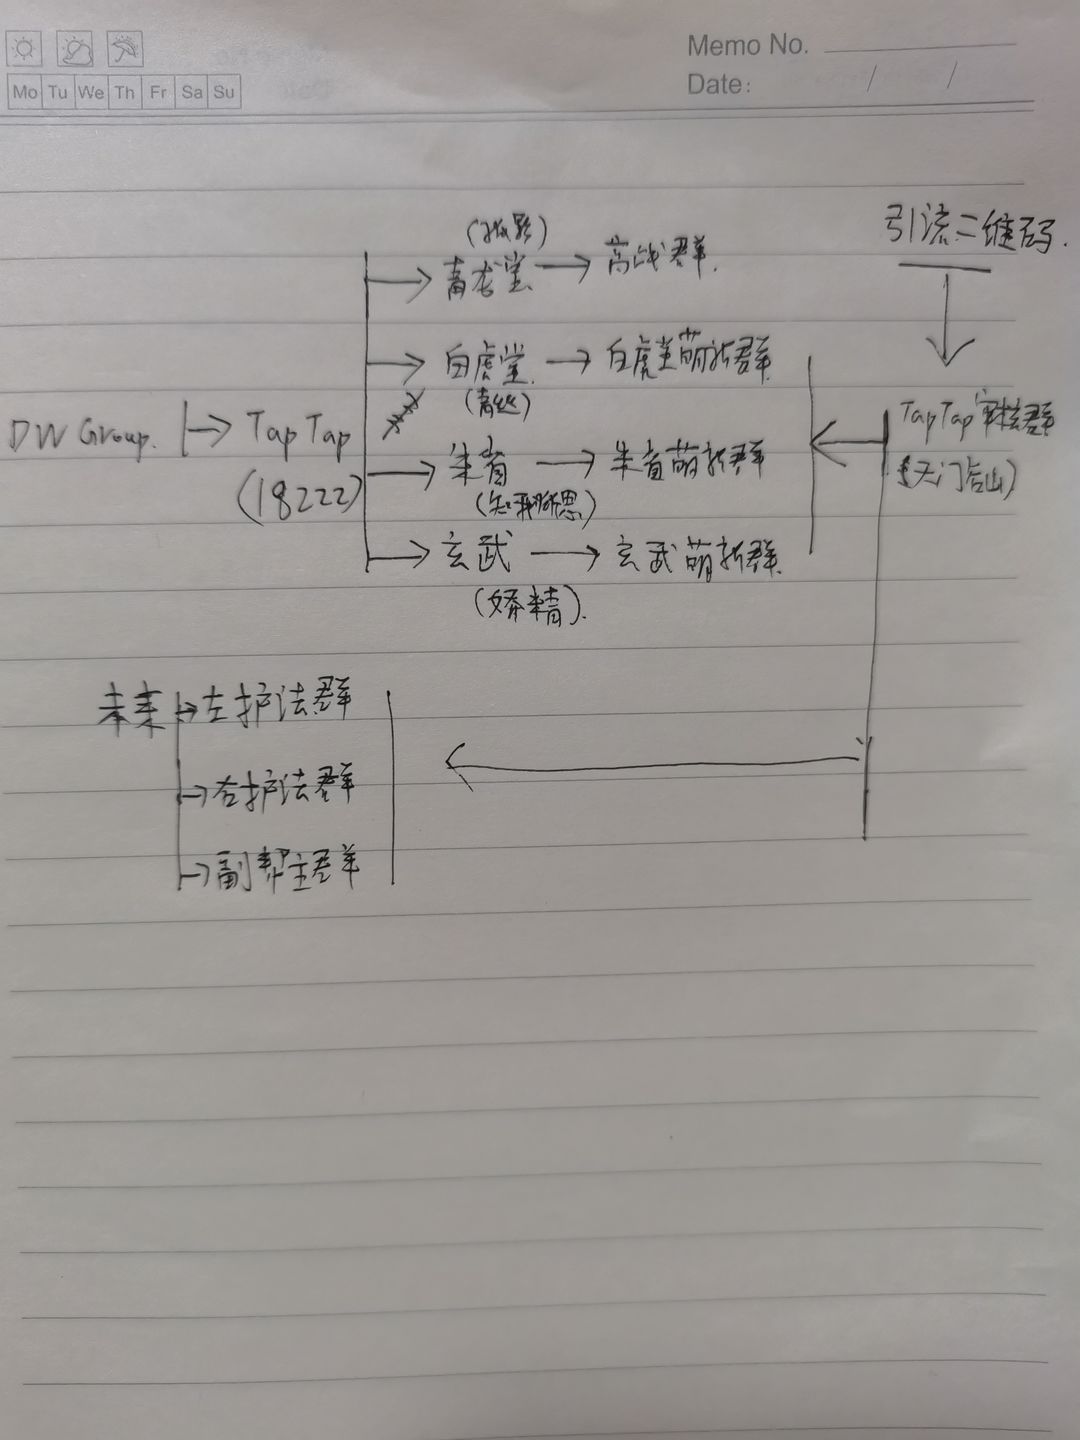 Memo No.
Mo Tu We Th Fr Sa Su
Date: / /
引流二维码.
青龙堂 → 高战群.
白虎堂. → 白虎堂萌新群
(青丝)
DW Group. → TapTap
(18222)
TapTap审核群
(天门后山)
朱雀 → 朱雀萌新群
(知我所思)
玄武 → 玄武萌新群.
(娇精).
未来 → 左护法群
→ 右护法群
→ 副帮主群